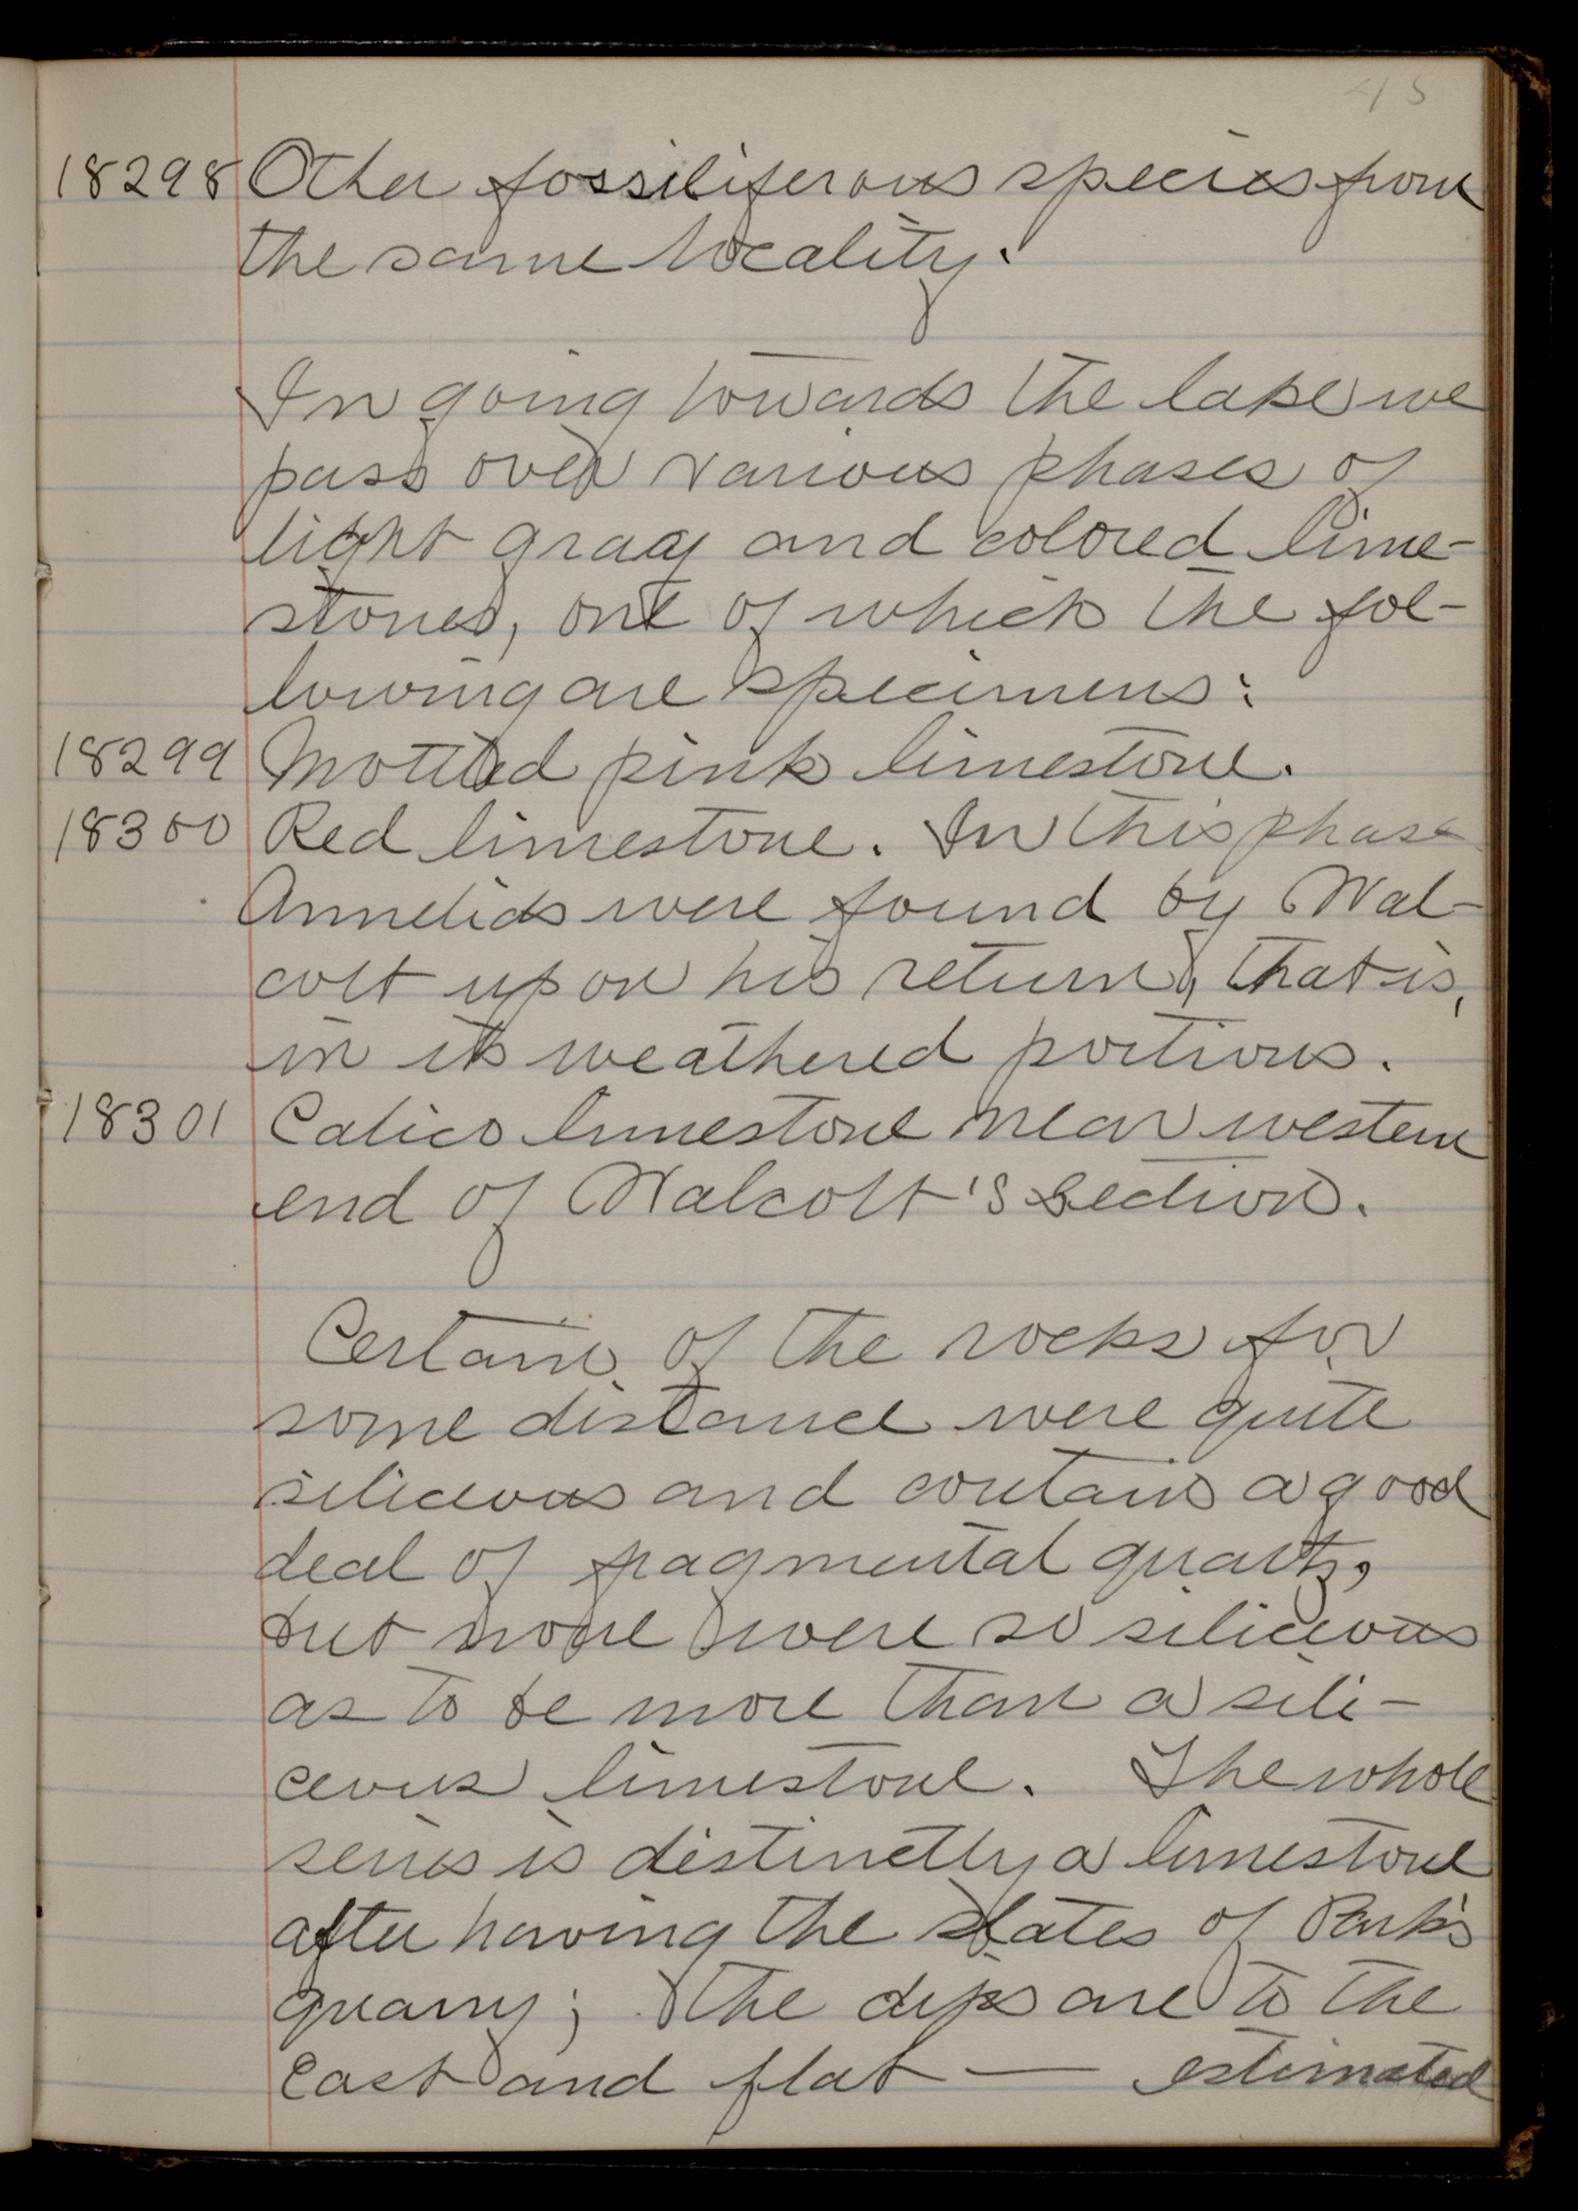 45
18298 Other fossiliferous species from
the same locality.
In going towards the lake we
pass over various phases of
light gray and colored lime-
stones, one of which the fol-
lowing are specimens:
18299 Mottled pink limestone.
18300 Red limestone. In this phase
Annelids were found by Wal-
cott upon his return, that is,
in its weathered portions.
18301 Calico limestone near western
end of Walcott's section.
Certain of the rocks for
some distance were quite
siliceous and contain a good
deal of fragmental quartz,
but none were so siliceous
as to be more than a sili-
ceous limestone. The whole
series is distinctly a limestone
after having the slates of Park's
quarry; the dips are to the
east and flat — estimated